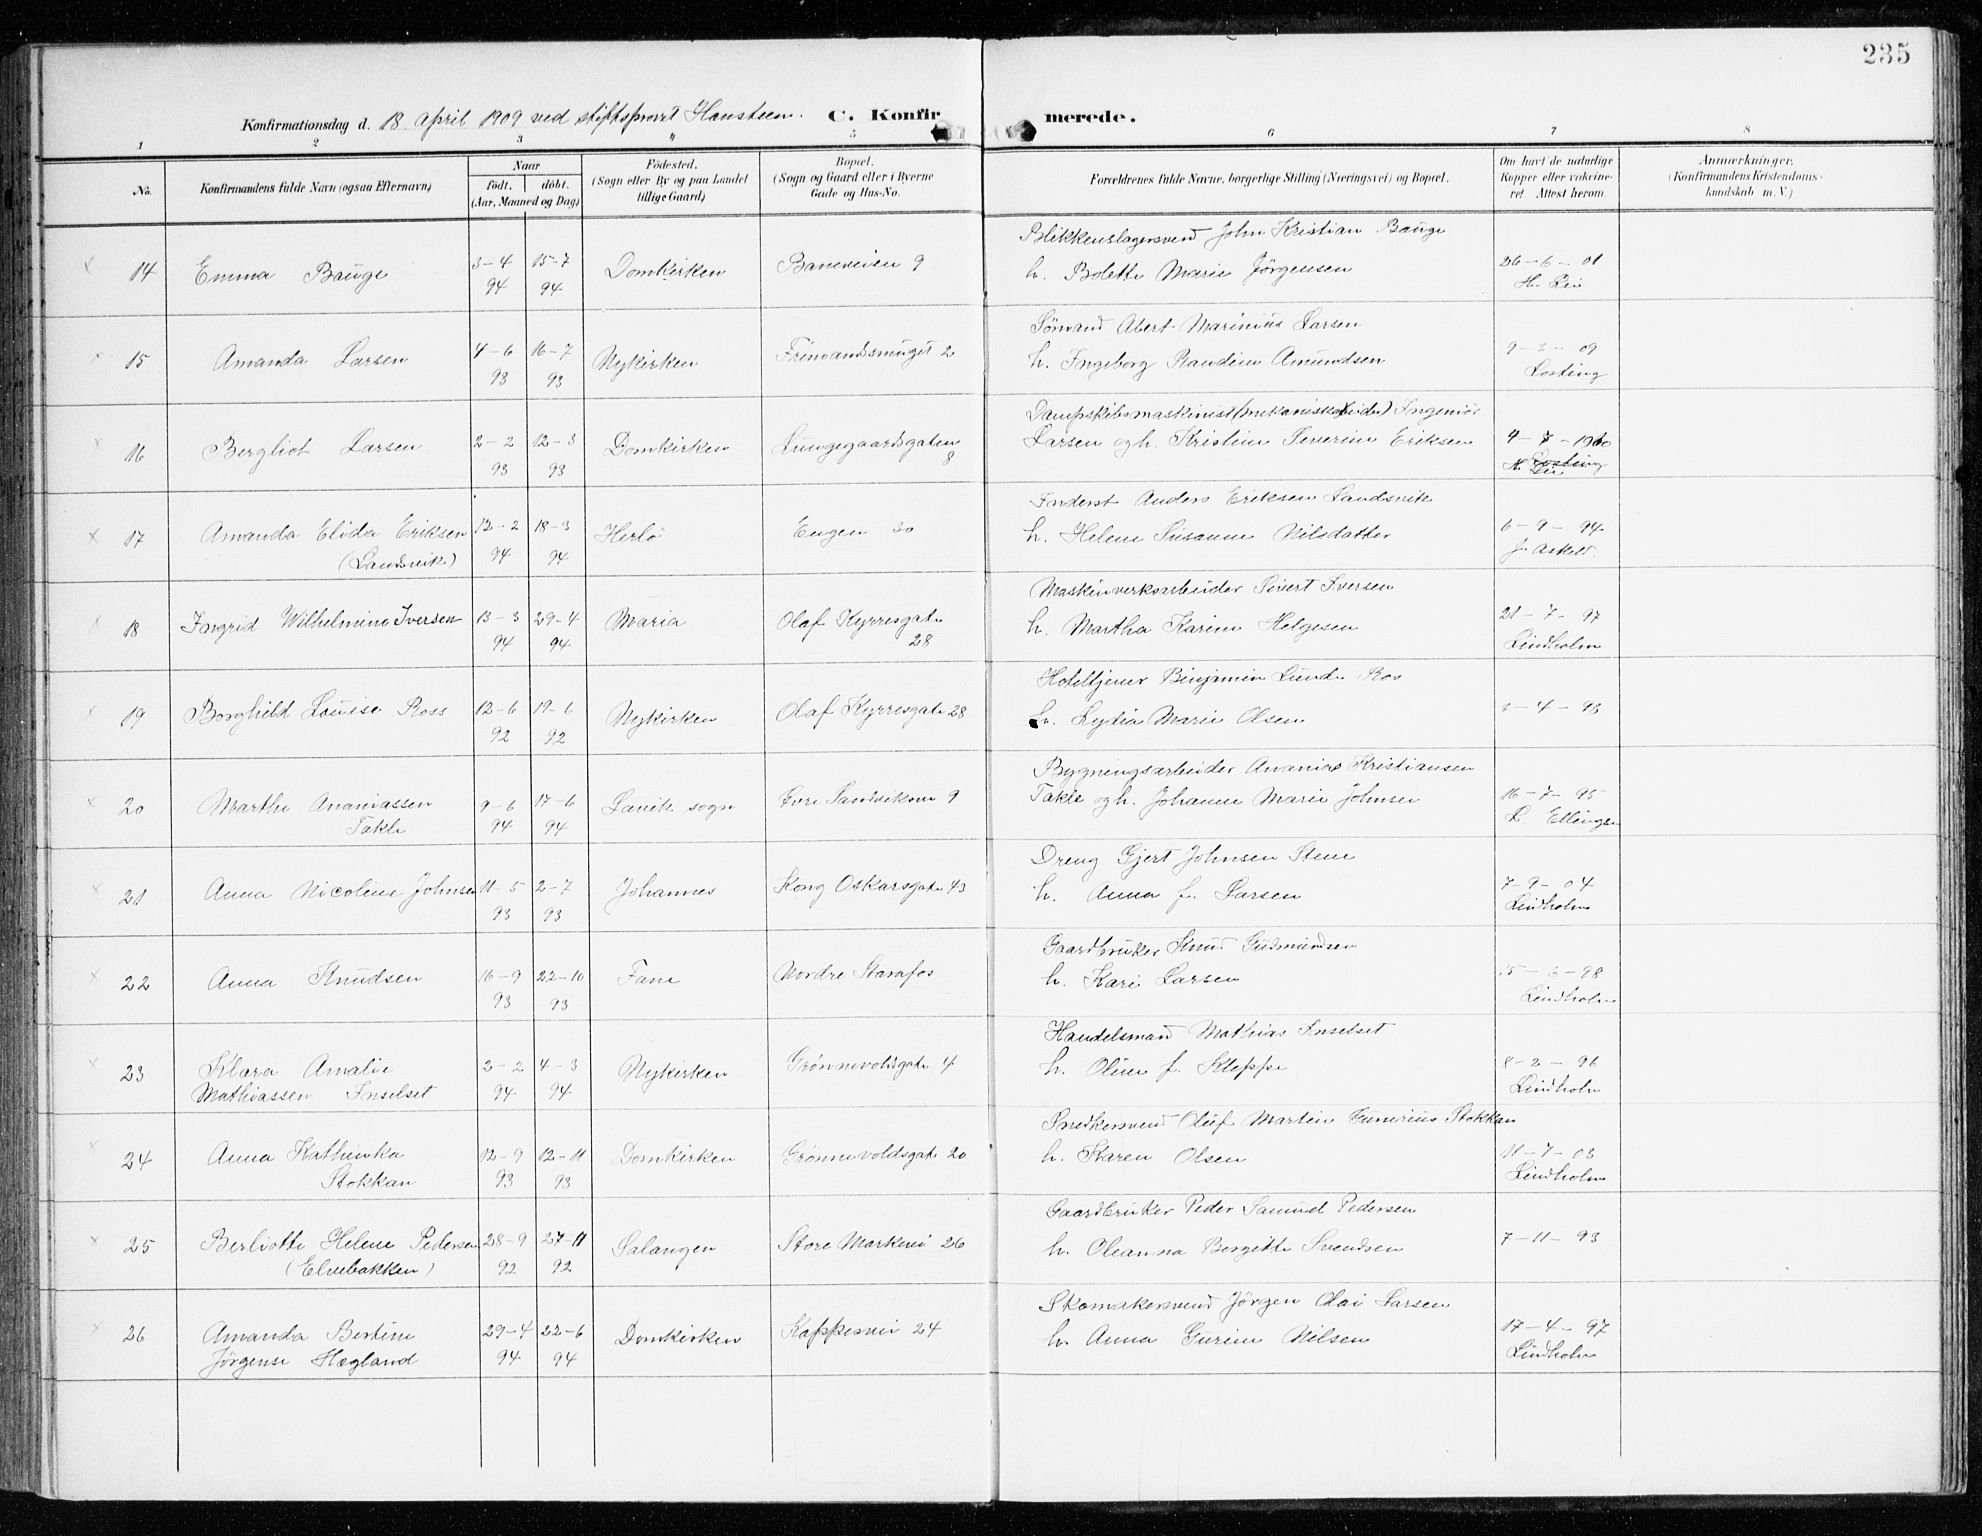 235
Konfirmationsdag d. 18. april 1909 ved stiftsprovst Hansteen. C. Konfirmerede.
1 2 3 4 5 6 7 8
No. Konfirmandens fulde Navn (ogsaa Efternavn) Naar födt. döbt. (Aar, Maaned og Dag) Födested. (Sogn eller By og paa Landet tillige Gaard) Bopæl. (Sogn og Gaard eller i Byerne Gade og Hus-No. Forældrenes fulde Navne, borgerlige Stilling (Næringsvei) og Bopæl. Om havt de naturlige Kopper eller vakcineret. Attest herom. Anmærkninger. (Konfirmandens Kristendomskundskab m. V.)
Blikkenslagersvend John Kristian Bauge
x 14 Emma Bauge 3-4 15-7 Domkirken Baneveien 9 h. Bolette Marie Jörgensen 26-6-01
94 94 H. Lie
Sömand Abert Marinius Larsen
x 15 Amanda Larsen 4-6 16-7 Nykirken 2 h. Ingeborg Amundsen 9-3-09
93 93 Losting
Dampskibsmaskinist Ingeniör
x 16 Bergliot Larsen 2-2 12-3 Domkirken Lungegaardsgaten 8 Larsen og h. Kristine Severine Eriksen 4-7-1900
93 93 Losting N. Lie
Anders Eriksen Landsvik
x 17 Amanda Elida Eriksen 12-2 18-3 Herlö Engen 30 h. Helene Susanne Nilsdatter 6-9-94
(Landsvik) 94 94 J. Askeld.
Maskinverksarbeider Sivert Iversen
x 18 Ingrid Wilhelmine Iversen 13-3 29-4 Maria Olaf Kyrresgate 28 h. Martha Karine Helgesen 21-7-97
94 94 Lindholm
Hoteltjener Binjamin Lunde Ros
x 19 Borghild Louise Ross 12-6 19-6 Nykirken Olaf Kyrresgate 28 h. Lydia Marie Olsen -4-93
92 92
Bygningsarbeider Ananias Kristiansen
x 20 Marthe Ananiassen 9-6 17-6 Lavik sogn Øvre Sandviksvei 9 Takle og h. Johanne Marie Johnsen 16-7-95
Takle 94 94 L. Ellingsen
Dreng Gjert Johnsen Stene
x 21 Anna Nicoline Johnsen 11-5 2-7 Johannes Kong Oskarsgate 43 h. Anna f. Larsen 7-9-04
93 93 Lindholm
Gaardbruker Knud Gudmundsen
x 22 Anna Knudsen 16-9 22-10 Fane Nordre Starafos h. Kari Larsen 15-6-98
93 93 Lindholm
Handelsmand Mathias Inselset
x 23 Klara Amalie 2-2 4-3 Nykirken Grønnevoldsgate 4 h. Oline f. Kleppe 8-2-96
Mathiassen Inselset 94 94 Lindholm
Snedkersvend Oluf Martin Gunerius Stokkan
x 24 Anna Kathinka 12-9 12-11 Domkirken Grønnevoldsgate 20 h. Karen Olsen 11-7-03
Stokkan 93 93 Lindholm
Gaardbruker Peder Samuel Pedersen
x 25 Berliotte Helene Pedersen 28-9 27-11 Salangen Store Markevei 26 h. Oleanna Bergitte Svendsen 7-11-93
(Elvebakken) 92 92
Skomakersvend Jörgen Olai Larsen
x 26 Amanda Bertine 29-4 22-6 Domkirken Kappesvei 24 h. Anna Gurine Nilsen 17-4-97
Jörgense Hægland 94 94 Lindholm